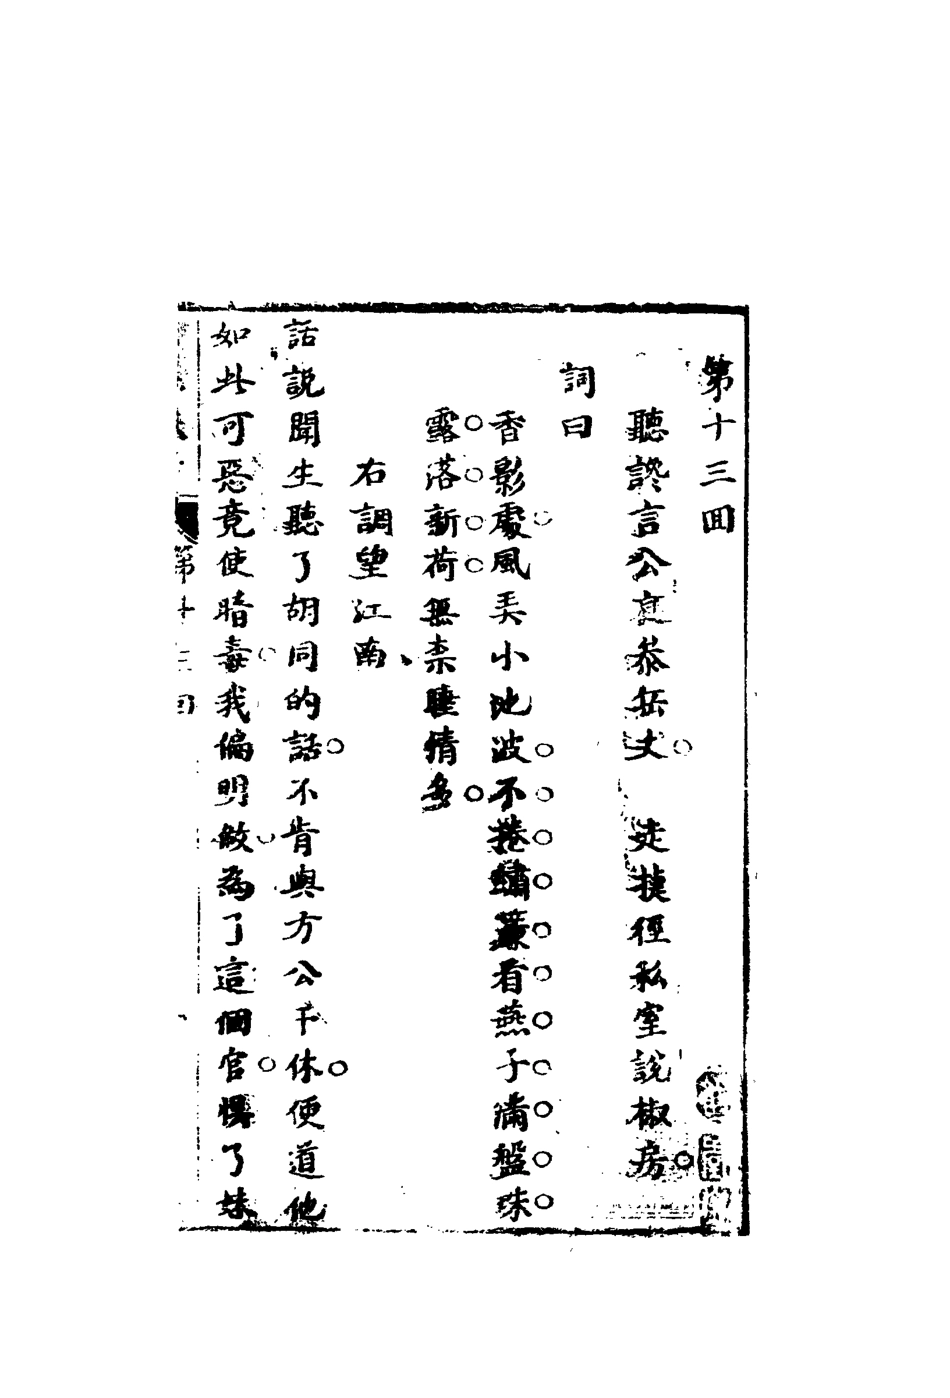 第十三回
聽讒言公庭恭岳丈　走捷徑私室說椒房
詞曰
香影處風弄小池波不捲繡簾看燕子滿盤珠
露落新荷無柰睡情多
右調望江南
話說聞生聽了胡同的話不肯與方公干休便道他
如此可惡竟使暗毒我偏明做為了這個官悞了妹
第十三回